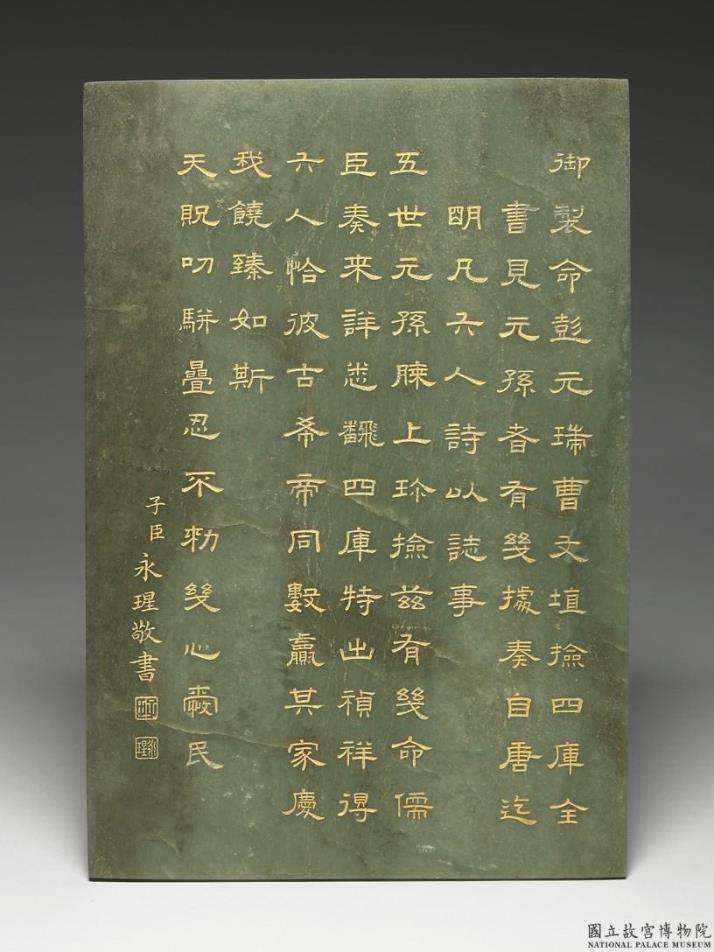 御製命彭元瑞曹文埴撿四庫全
書見元孫者有幾據奏自唐迄
明凡六人詩以誌事
五世元孫膝上珍撿茲有幾命儒
臣奏来詳悉翻四庫特出禎祥得
六人恰彼古希帝同數贏其家慶
我饒臻如斯
天貺叨駢疊忍不勑幾心愛民
子臣永瑆敬書
國立故宮博物院
NATIONAL PALACE MUSEUM